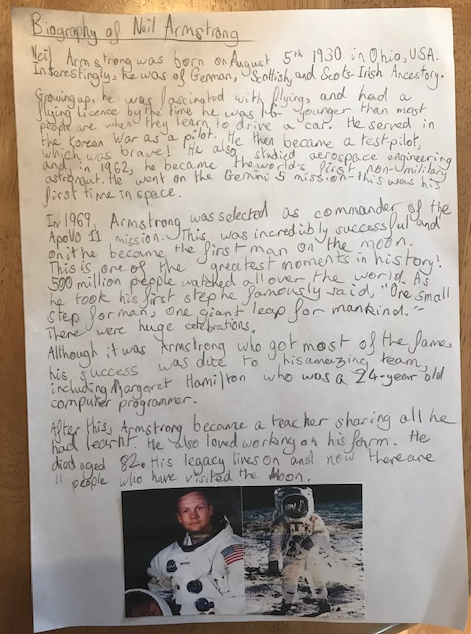 Biography of Neil Armstrong
Neil Armstrong was born on August 5th 1930 in Ohio, USA.
Interestingly, he was of German, Scottish, and Scots-Irish Ancestory.
Growing up, he was fascinated with flying, and had a
flying licence by the time he was 16 - younger than most
people are when they learn to drive a car. He served in
the Korean War as a pilot. He then became a test pilot,
which was brave! He also studied aerospace engineering
and, in 1962, he became the world's first non-military
astronaut. He went on the Gemini 5 mission - this was his
first time in space.
In 1969, Armstrong was selected as commander of the
Apollo 11 mission. This was incredibly successful and
on it he became the first man on the moon.
This is one of the greatest moments in history!
500 million people watched all over the world. As
he took his first step he famously said, "One small
step for man, one giant leap for mankind."
There were huge celebrations.
Although it was Armstrong who got most of the fame,
his success was due to his amazing team,
including Margaret Hamilton who was a 24-year old
computer programmer.
After this, Armstrong became a teacher sharing all he
had learnt. He also loved working on his farm. He
died aged 82. His legacy lives on and now there are
11 people who have visited the Moon.